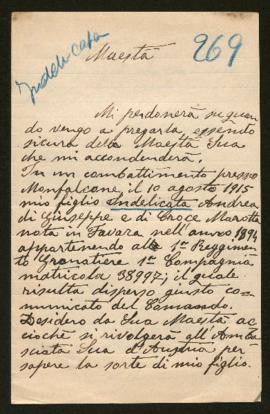 Indelicata
269
Maestà
Mi perdonerà se quan
do vengo a pregarla, essendo
sicura della Maestà Sua
che mi accondenderà.
In un combattimento presso
Monfalcone, il 10 agosto 1915
mio figlio Indelicata Andrea
di Giuseppe e di Croce Marotta
nato in Favara nell'anno 1894
appartenendo alle 1º Reggimen
to Granatiere 1ª Compagnia
matricola 38997; il quale
risulta disperso giusto co
municato del Comando.
Desidero da Sua Maestà ac
ciocchè si rivolgerà all'Amba
sciata Sua d'Austria per
sapere la sorte di mio figlio.